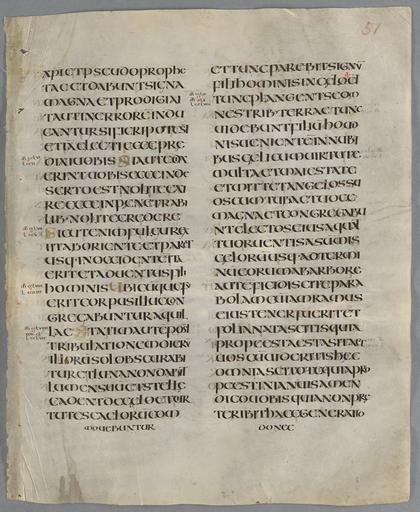 XPI ET PSEUDOPROPHE
TAE ET DABUNT SIGNA
MAGNA ET PRODIGIA I
TA UT IN ERROREM INDU
CANTUR SI FIERI POTEST
ETIA ELECTI ECCE PRE
DIXI UOBIS SI AUTE DIX
ERINT UOBIS ECCE IN DE
SERTO EST NOLITE EXI
RE ECCE IN PENETRABI
LIB· NOLITE CREDERE
SICUT ENIM FULGUR EX
IIT AB ORIENTE ET PARET
USQ· IN OCCIDENTE ITA
ERIT ET ADUENTUS FILI
HOMINIS UBICUMQUE F
ERIT CORPUS ILLUC CON
GREGABUNTUR AQUIL
LAE STATIM AUTE POST
TRIBULATIONEM DIERU
ILLORU SOL OBSCURABI
TUR ET LUNA NON DABIT
LUMEN SUU ET STELLE
CADENT DE CELO ET UIR
TUTES CAELORUM COM
MOUEBUNTUR
51
ET TUNC PAREBIT SIGNU
FILII HOMINIS IN CAELO ET
TUNC PLANGENT SE OM
NES TRIB· TERRAE TUNC
UIDEBUNT FILIU HOM
NIS UENIENTE IN NUBI
BUS CAELI CUM UIRTUTE
MULTA ET MAIESTATE
ET MITTET ANGELOS SU
OS CUM TUBA ET UOCE
MAGNA ET CONGREGABU
NT ELECTOS EIUS A QUAT
TUOR UENTIS A SUMMIS
CAELORU USQ· AD TERMI
NU EORUM AB ARBORE
AUTE FICI DISCITE PARA
BOLAM CUM RAMUS
EIUS TENER FUERIT ET
FOLIA NATA SCITIS QUIA
PROPE EST AESTAS ITA ET
UOS CUM UIDERITIS HEC
OMNIA SCITOTE QUIA PRO
PE EST IN IANUIS AMEN
DICO UOBIS QUIA NON PRE
TERIBIT HAEC GENERATIO
DONEC